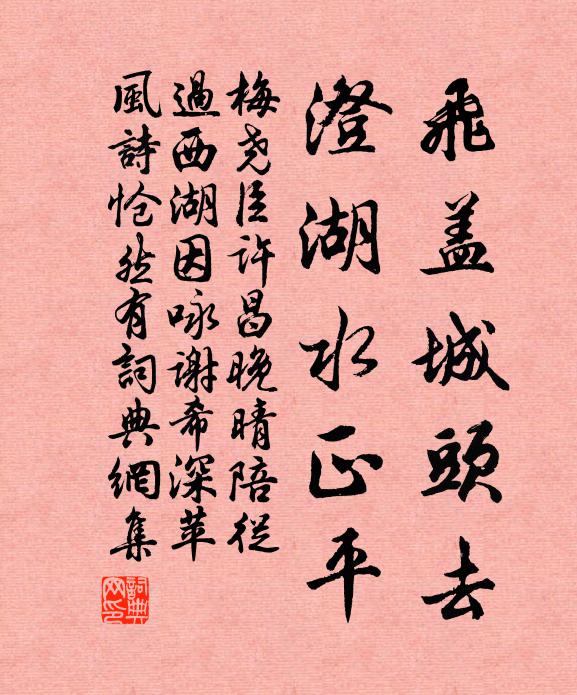 飛盖城頭去
澄湖水正平
梅尧臣許昌晚晴陪從
過西湖因咏謝希深苹
風詩怆然有詞典網集
詞典
网印